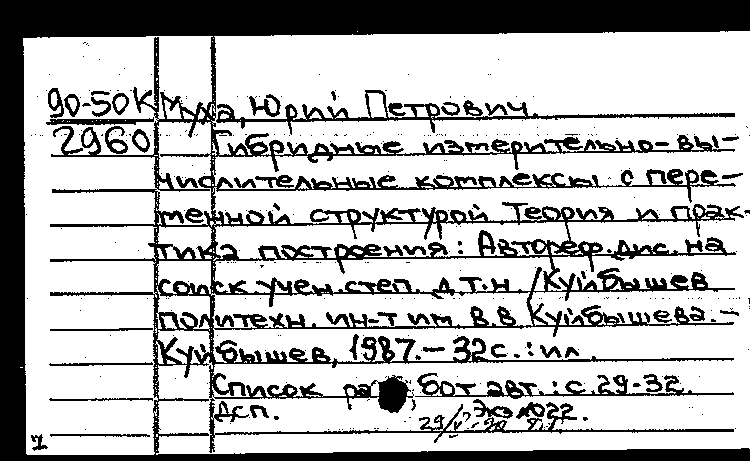 90-50К Муха, Юрий Петрович.
2960 Гибридные измерительно-вы-
числительные комплексы с пере-
менной структурой. Теория и прак-
тика построения: Автореф. дис. на
соиск. учен. степ. д.т.н. /Куйбышев.
политехн. ин-т им. В.В. Куйбышева. –
Куйбышев, 1987. – 32 с.: ил.
Список работ авт.: с. 29-32.
Дсп. Экз N022.
29/V-90
1